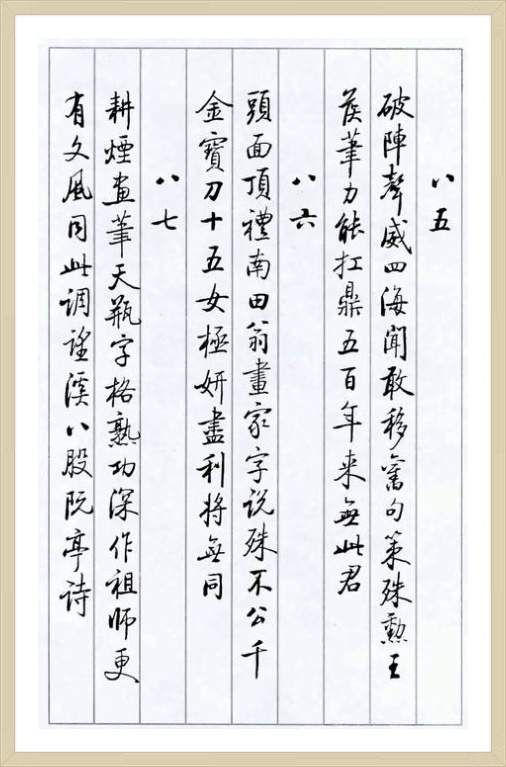 八五
破陣聲威四海聞敢移舊句策殊勳王
侯筆力能扛鼎五百年来無此君
八六
頭面頂禮南田翁畫家字说殊不公千
金寶刀十五女極妍盡利將無同
八七
耕煙畫筆天瓶字格熟功深作祖師更
有文風同此調望溪八股阮亭诗